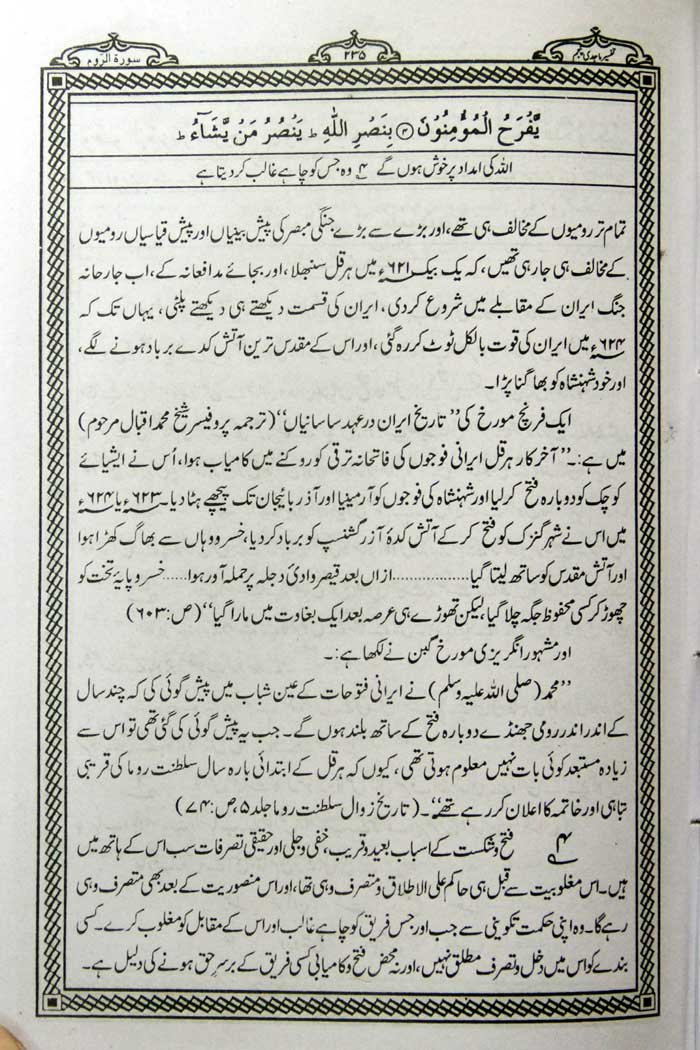 تفسیر ماجدی پنجم
۲۳۵
سورة الرّوم
يَّفْرَحُ الْمُؤْمِنُوْنَ ④ بِنَصْرِ اللّٰهِ ؕ يَنْصُرُ مَنْ يَّشَآءُ ؕ
اللہ کی امداد پر خوش ہوں گے ۴؎ وہ جس کو چاہے غالب کر دیتا ہے
تمام تر رومیوں کے مخالف ہی تھے، اور بڑے سے بڑے جنگی مبصر کی پیش بینیاں اور پیش قیاسیاں رومیوں
کے مخالف ہی جارہی تھیں، کہ یک بیک ۶۲۱ء میں ہرقل سنبھلا، اور بجائے مدافعانہ کے، اب جارحانہ
جنگ ایران کے مقابلے میں شروع کردی، ایران کی قسمت دیکھتے ہی دیکھتے پلٹی، یہاں تک کہ
۶۲۴ء میں ایران کی قوت بالکل ٹوٹ کر رہ گئی، اور اس کے مقدس ترین آتش کدے برباد ہونے لگے،
اور خود شہنشاہ کو بھاگنا پڑا۔
ایک فرنچ مورخ کی ’’تاریخ ایران در عہد ساسانیاں‘‘ (ترجمہ پروفیسر شیخ محمد اقبال مرحوم)
میں ہے:۔ ’’آخر کار ہرقل ایرانی فوجوں کی فاتحانہ ترقی کو روکنے میں کامیاب ہوا، اُس نے ایشیائے
کوچک کو دوبارہ فتح کرلیا اور شہنشاہ کی فوجوں کو آرمینیا اور آذربائیجان تک پیچھے ہٹا دیا۔ ۶۲۳ء یا ۶۲۴ء
میں اس نے شہر گنزک کو فتح کرکے آتش کدۂ آزرگشنسپ کو برباد کردیا، خسرو وہاں سے بھاگ کھڑا ہوا
اور آتش مقدس کو ساتھ لیتا گیا.................. ازاں بعد قیصر وادیٔ دجلہ پر حملہ آور ہوا...... خسرو پایۂ تخت کو
چھوڑ کر کسی محفوظ جگہ چلا گیا، لیکن تھوڑے ہی عرصہ بعد ایک بغاوت میں مارا گیا‘‘ (ص:۶۰۳)
اور مشہور انگریزی مورخ گبن نے لکھا ہے:۔
’’محمد (صلی اللہ علیہ وسلم) نے ایرانی فتوحات کے عین شباب میں پیش گوئی کی کہ چند سال
کے اندر اندر رومی جھنڈے دوبارہ فتح کے ساتھ بلند ہوں گے۔ جب یہ پیش گوئی کی گئی تھی تو اس سے
زیادہ مستبعد کوئی بات نہیں معلوم ہوتی تھی، کیوں کہ ہرقل کے ابتدائی بارہ سال سلطنت روما کی قریبی
تباہی اور خاتمہ کا اعلان کررہے تھے‘‘۔ (تاریخ زوال سلطنت روما جلد ۵، ص:۷۴)
۴؎ فتح وشکست کے اسباب بعید وقریب، خفی وجلی اور حقیقی تصرفات سب اس کے ہاتھ میں
ہیں۔ اس مغلوبیت سے قبل ہی حاکم علی الاطلاق و متصرف وہی تھا، اور اس منصوریت کے بعد بھی متصرف وہی
رہے گا۔ وہ اپنی حکمت تکوینی سے جب اور جس فریق کو چاہے غالب اور اس کے مقابل کو مغلوب کرے۔ کسی
بندے کو اس میں دخل و تصرف مطلق نہیں، اور نہ محض فتح و کامیابی کسی فریق کے برسر حق ہونے کی دلیل ہے۔